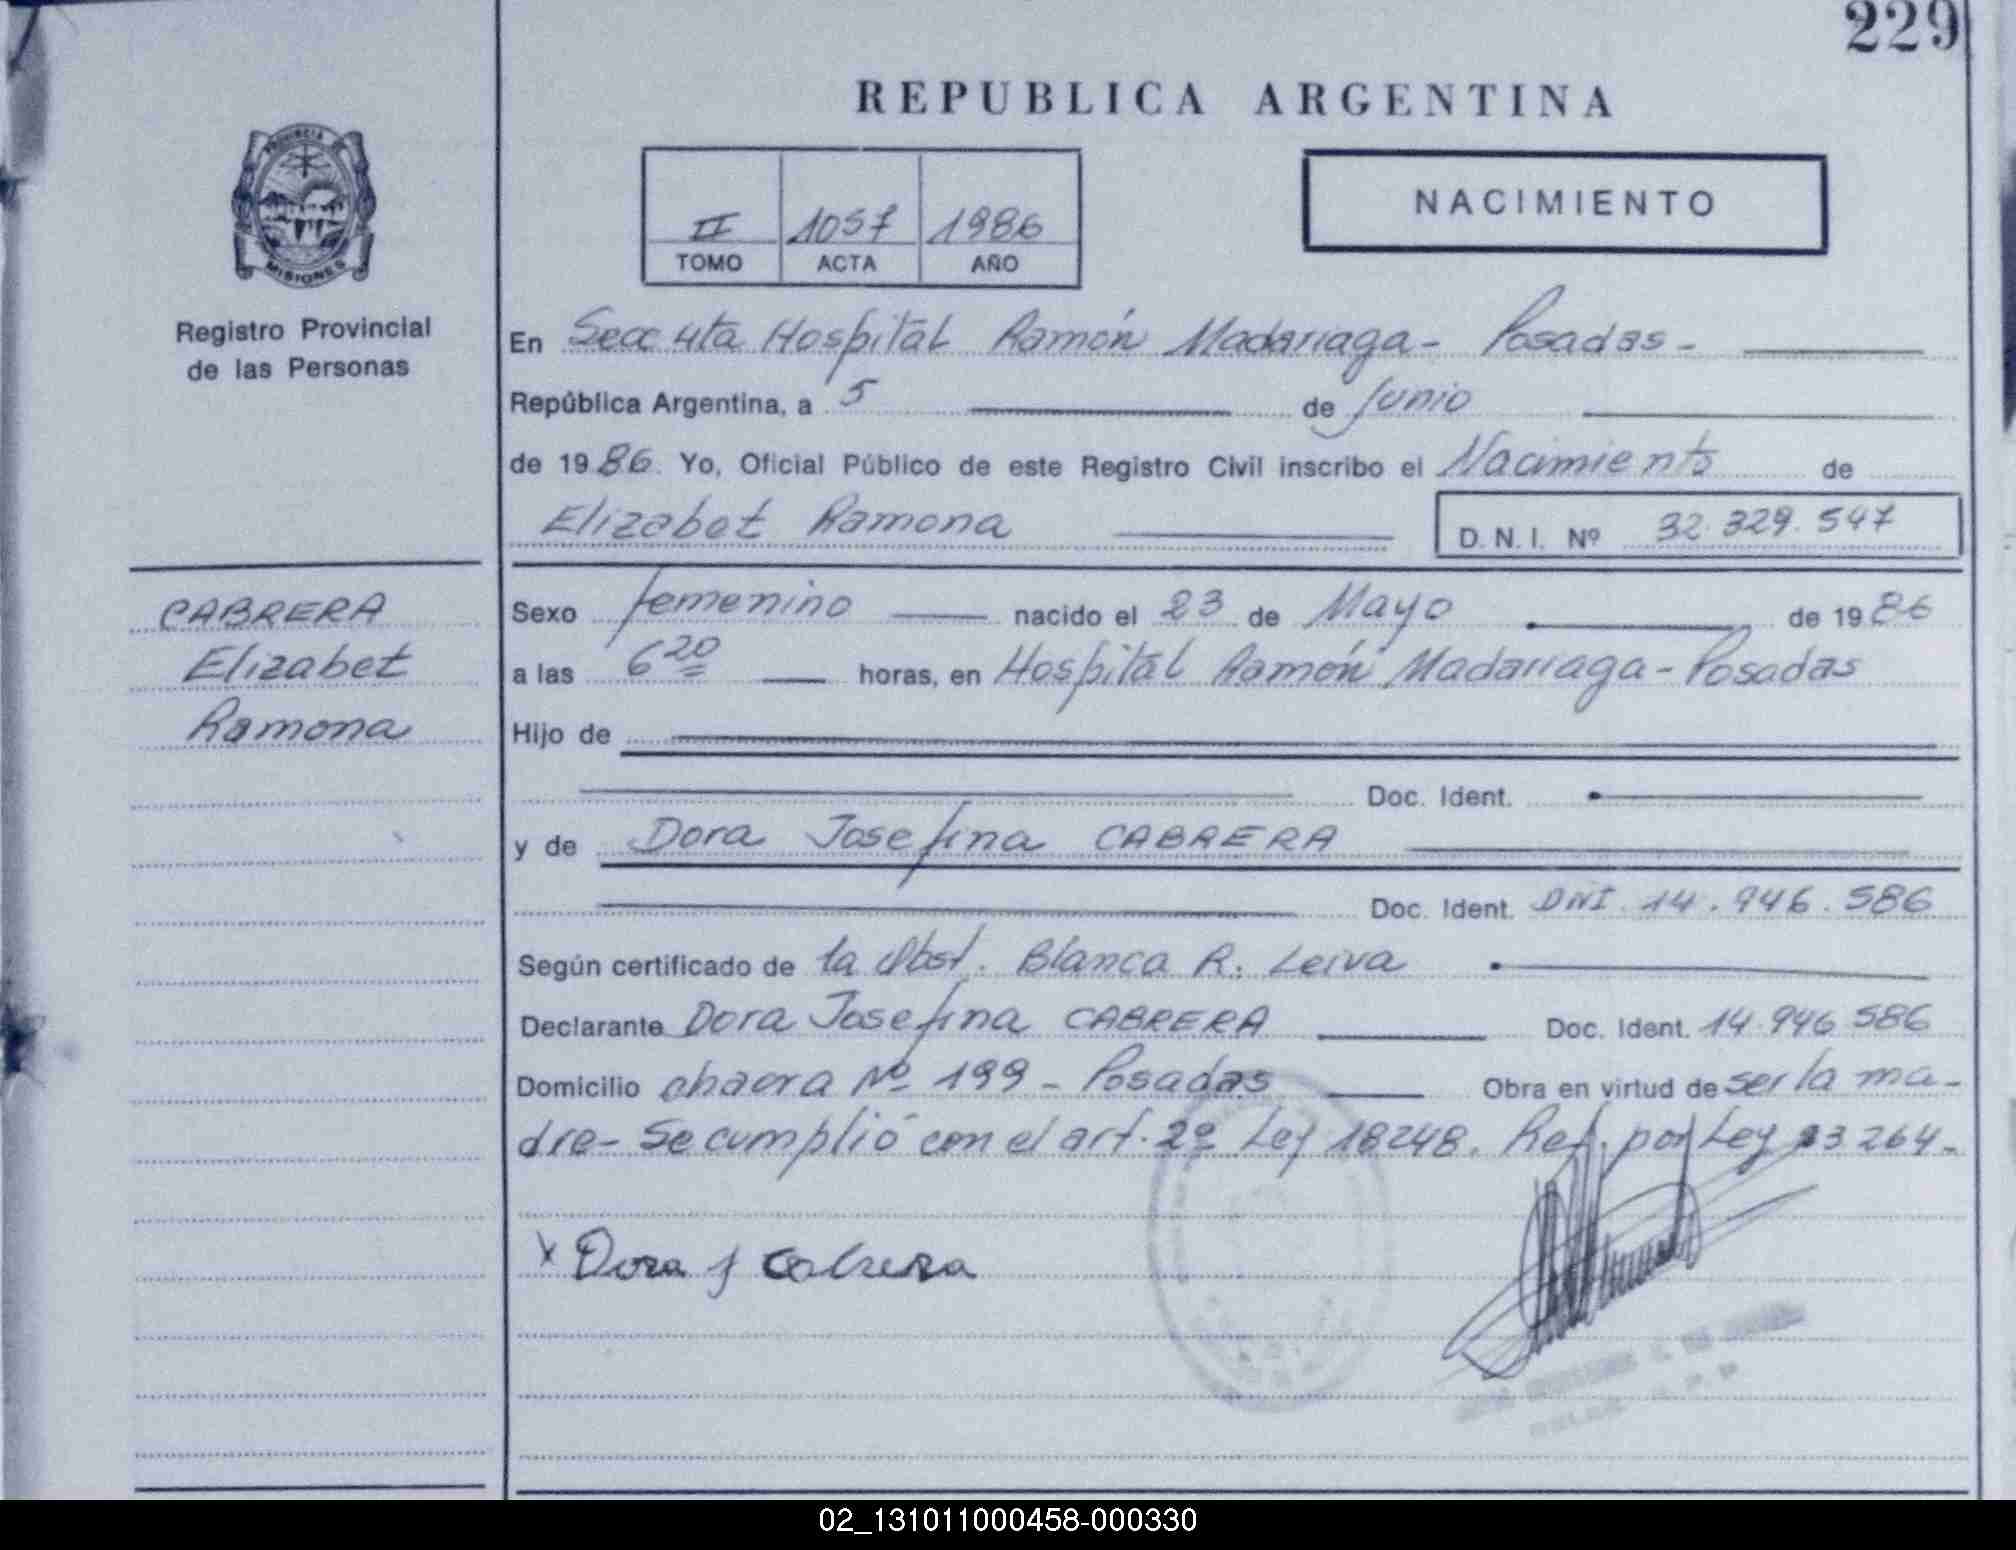 229
REPUBLICA ARGENTINA
PROVINCIA DE
MISIONES
Registro Provincial
de las Personas
II 1057 1986
TOMO ACTA AÑO
NACIMIENTO
En Secc 4ta Hospital Ramón Madariaga - Posadas -
República Argentina, a 5 de Junio
de 1986. Yo, Oficial Público de este Registro Civil inscribo el Nacimiento de
Elizabet Ramona D. N. I. Nº 32.329.547
CABRERA
Elizabet
Ramona
Sexo femenino nacido el 23 de Mayo de 1986
a las 6 20 horas, en Hospital Ramón Madariaga - Posadas
Hijo de
Doc. Ident.
y de Dora Josefina CABRERA
Doc. Ident. DNI. 14.946.586
Según certificado de la Obst. Blanca R. Leiva
Declarante Dora Josefina CABRERA Doc. Ident. 14.946 586
Domicilio chacra Nº 199 - Posadas Obra en virtud de ser la ma-
dre- Se cumplió con el art. 2º Ley 18248. Ref. por Ley 23264-
x Dora J Cabrera
02_131011000458-000330